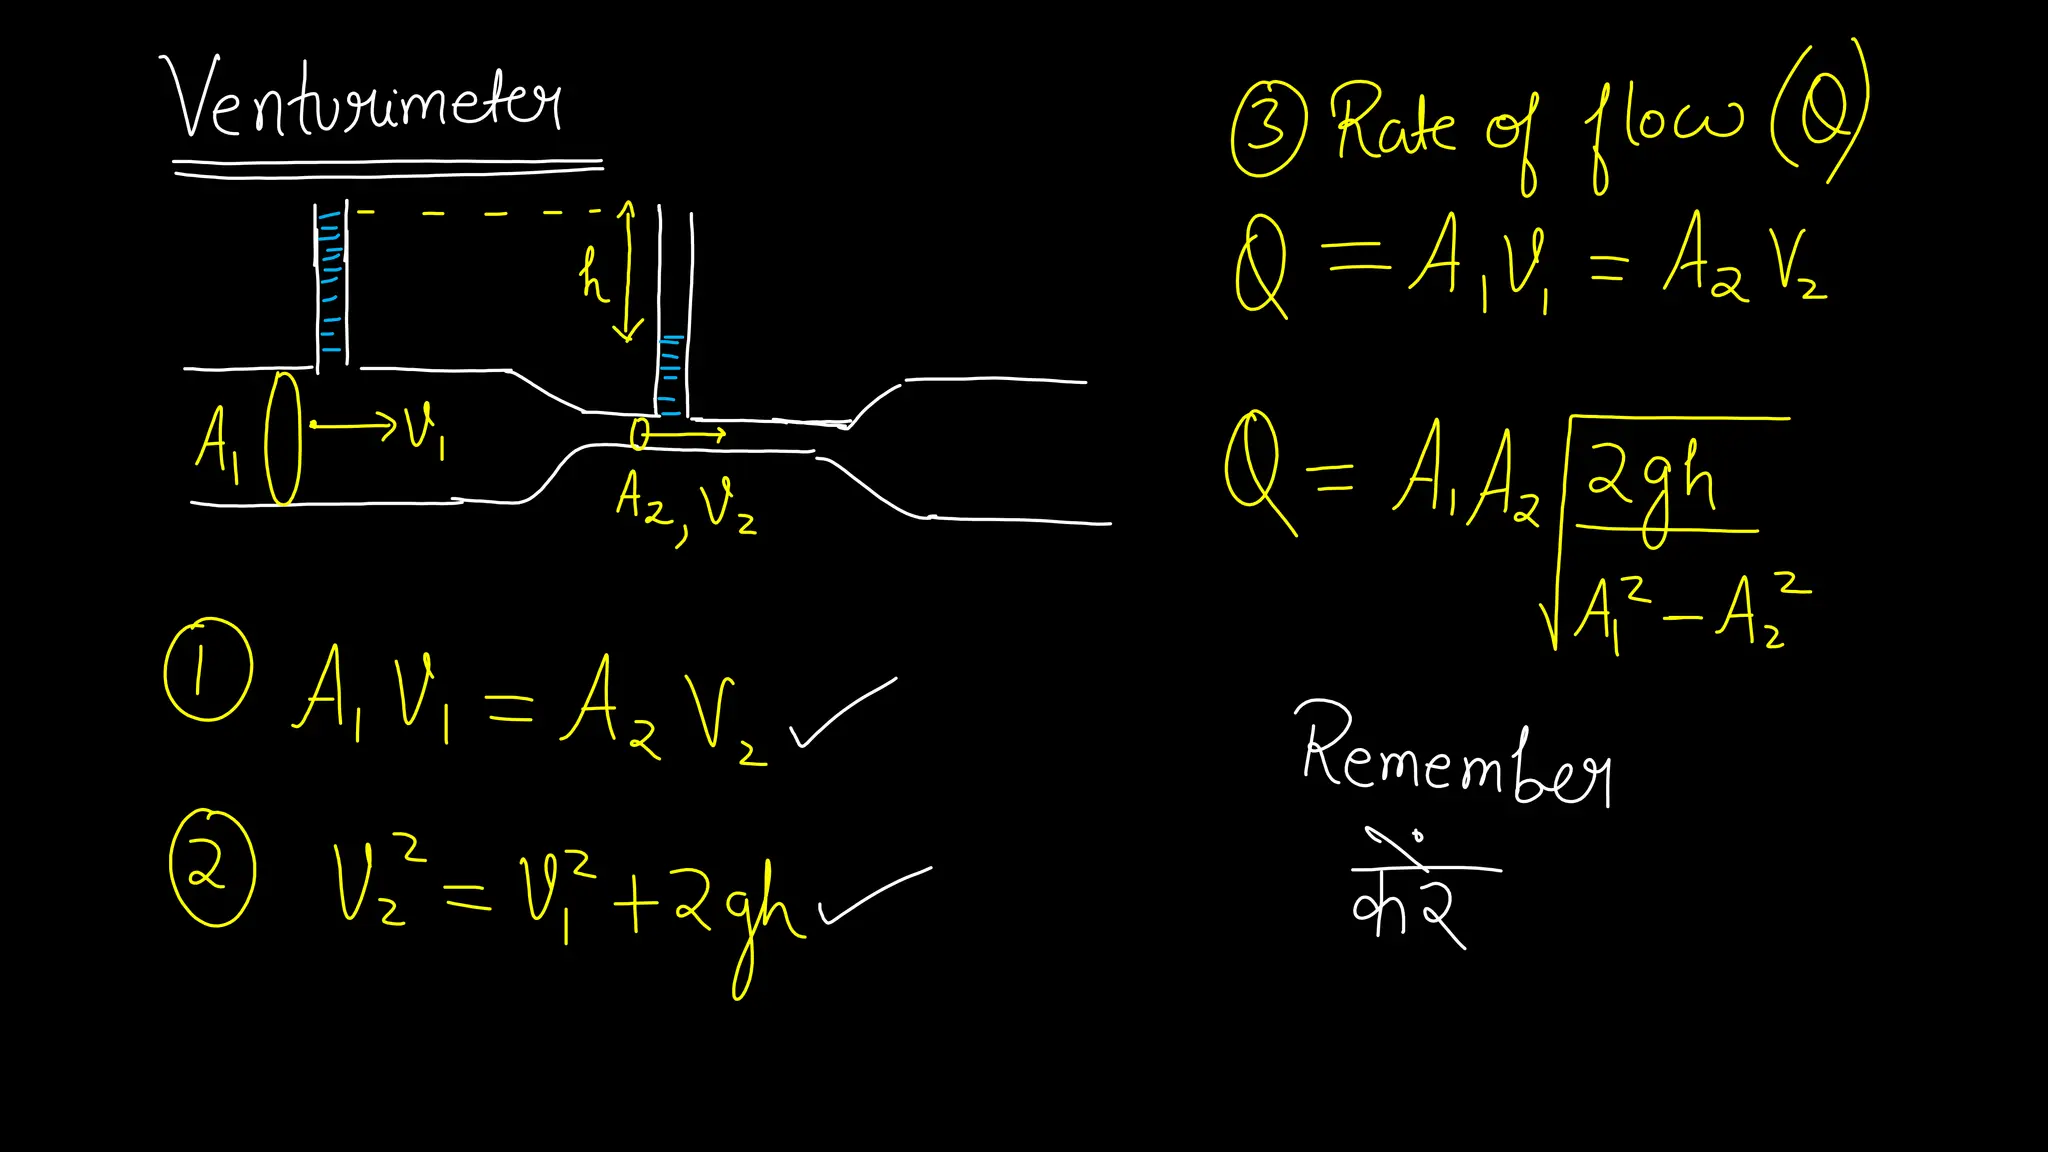 Venturimeter
h
A₁ V₁
A₂, V₂
① A₁ V₁ = A₂ V₂ ✓
② V₂² = V₁² + 2gh ✓
③ Rate of flow (Q)
Q = A₁V₁ = A₂ V₂
Q = A₁A₂ √(2gh / (A₁² − A₂²))
Remember